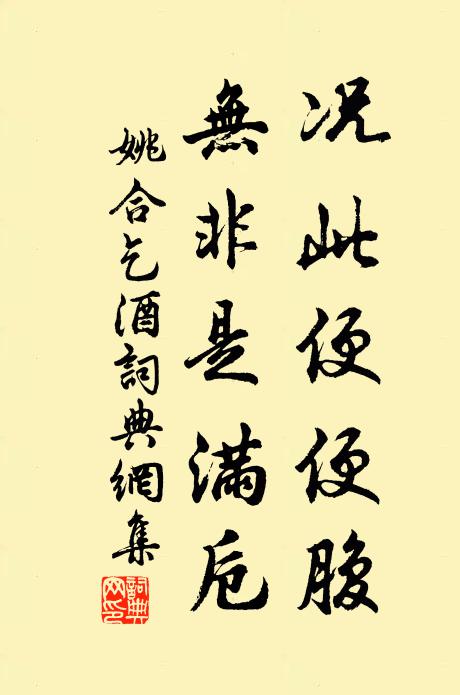 况此便便腹
無非是滿卮
姚合乞酒詞典網集
詞典网印